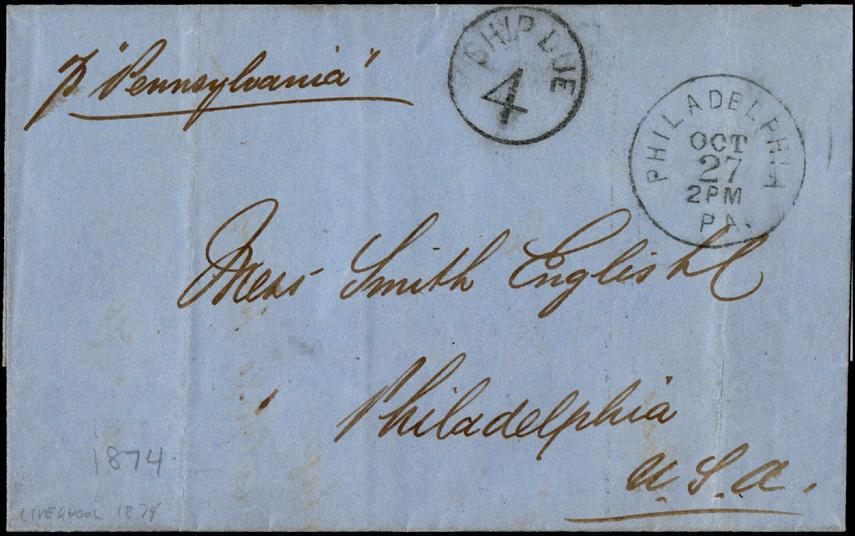 p. "Pennsylvania"
SHIP DUE
4
PHILADELPHIA
OCT
27
2PM
PA.
Mess Smith English &
Philadelphia
U.S.A.
1874
LIVERPOOL 1874